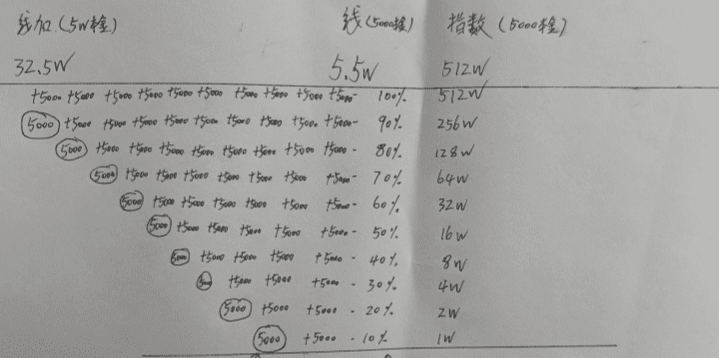 线加(5W本金) 线(5000本金) 指数(5000本金)
32.5W 5.5W 512W
+5000 +5000 +5000 +5000 +5000 +5000 +5000 +5000 +5000 +5000 - 100% 512W
5000 +5000 +5000 +5000 +5000 +5000 +5000 +5000 +5000 - 90% 256W
5000 +5000 +5000 +5000 +5000 +5000 +5000 +5000 - 80% 128W
5000 +5000 +5000 +5000 +5000 +5000 +5000 - 70% 64W
5000 +5000 +5000 +5000 +5000 +5000 - 60% 32W
5000 +5000 +5000 +5000 +5000 - 50% 16W
5000 +5000 +5000 +5000 +5000 - 40% 8W
5000 +5000 +5000 +5000 - 30% 4W
5000 +5000 +5000 - 20% 2W
5000 +5000 - 10% 1W